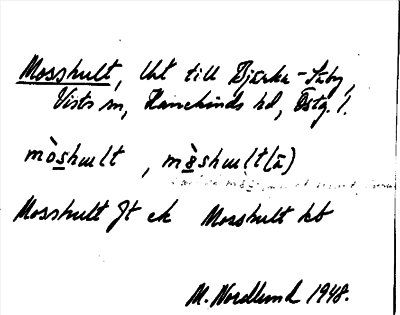 Mosshult, Uht till Bjärka-Säby,
Vists sn, Hanekinds hd, Östg. l.
mòshult, mòshult(ä)
Mosshult Jt ek Mosshult kb
M. Nordlund 1948.